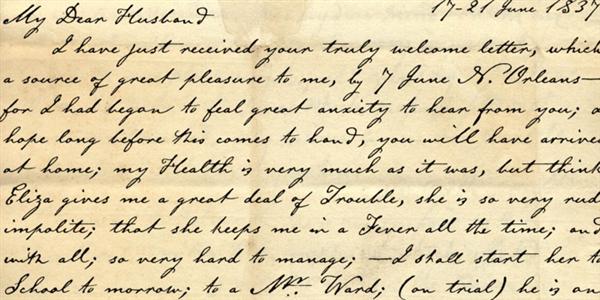 17-21 June 1837
My Dear Husband
I have just received your truly welcome letter, which
a source of great pleasure to me, by 7 June N. Orleans—
for I had began to feal great anxiety to hear from you;
hope long before this comes to hand, you will have arrived
at home; my Health is very much as it was, but think
Eliza gives me a great deal of Trouble, she is so very rud
impolite; that she keeps me in a Fever all the time; and
with all; so very hard to manage; — I shall start her to
School to morrow; to a Mr. Ward; (on trial) he is an